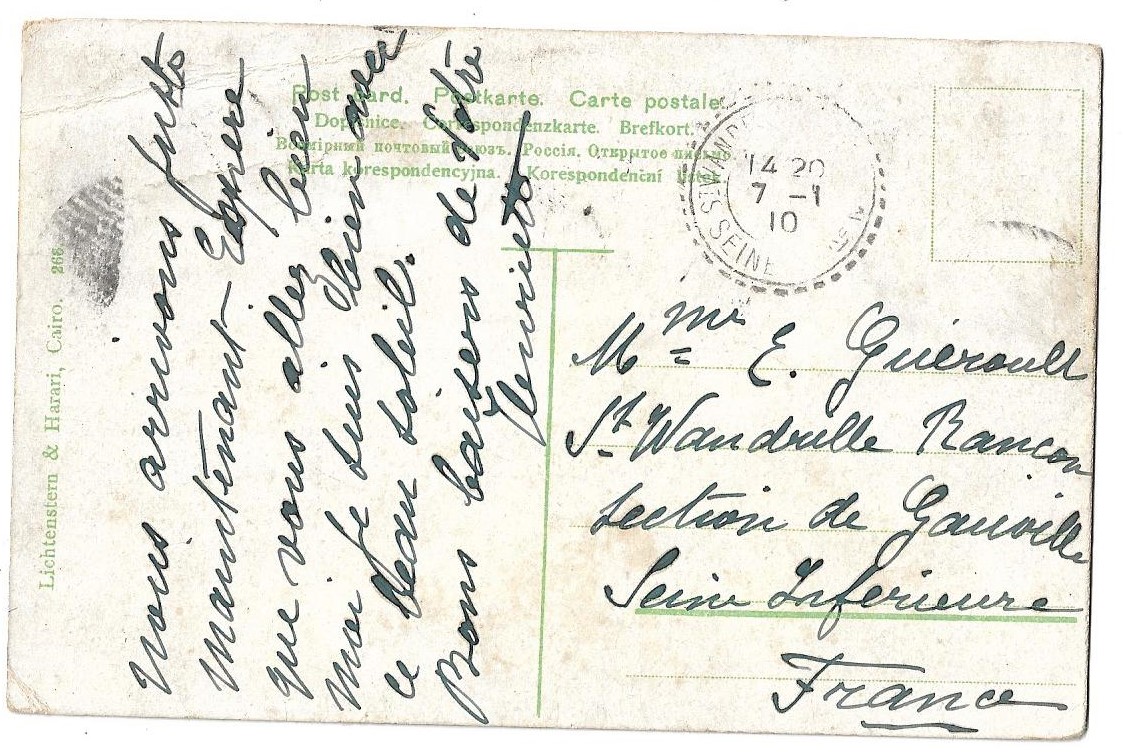 Post card. Postkarte. Carte postale.
Dopisnice. Correspondenzkarte. Brefkort.
Всемірный почтовый союзъ. Россія. Открытое письмо.
Karta korespondencyjna. Korespondenční lístek.
Lichtenstern & Harari, Cairo. 268
Nous arrivons juste
maintenant Espère
que vous allez bien
moi je suis bien avec
ce beau soleil.
Bons baisers de Votre
Henriette
WANDR
14 20
7 -1
10
SEINE
Mme E. Guéroult
St Wandrille Rançon
section de Gauville
Seine Inférieure
France